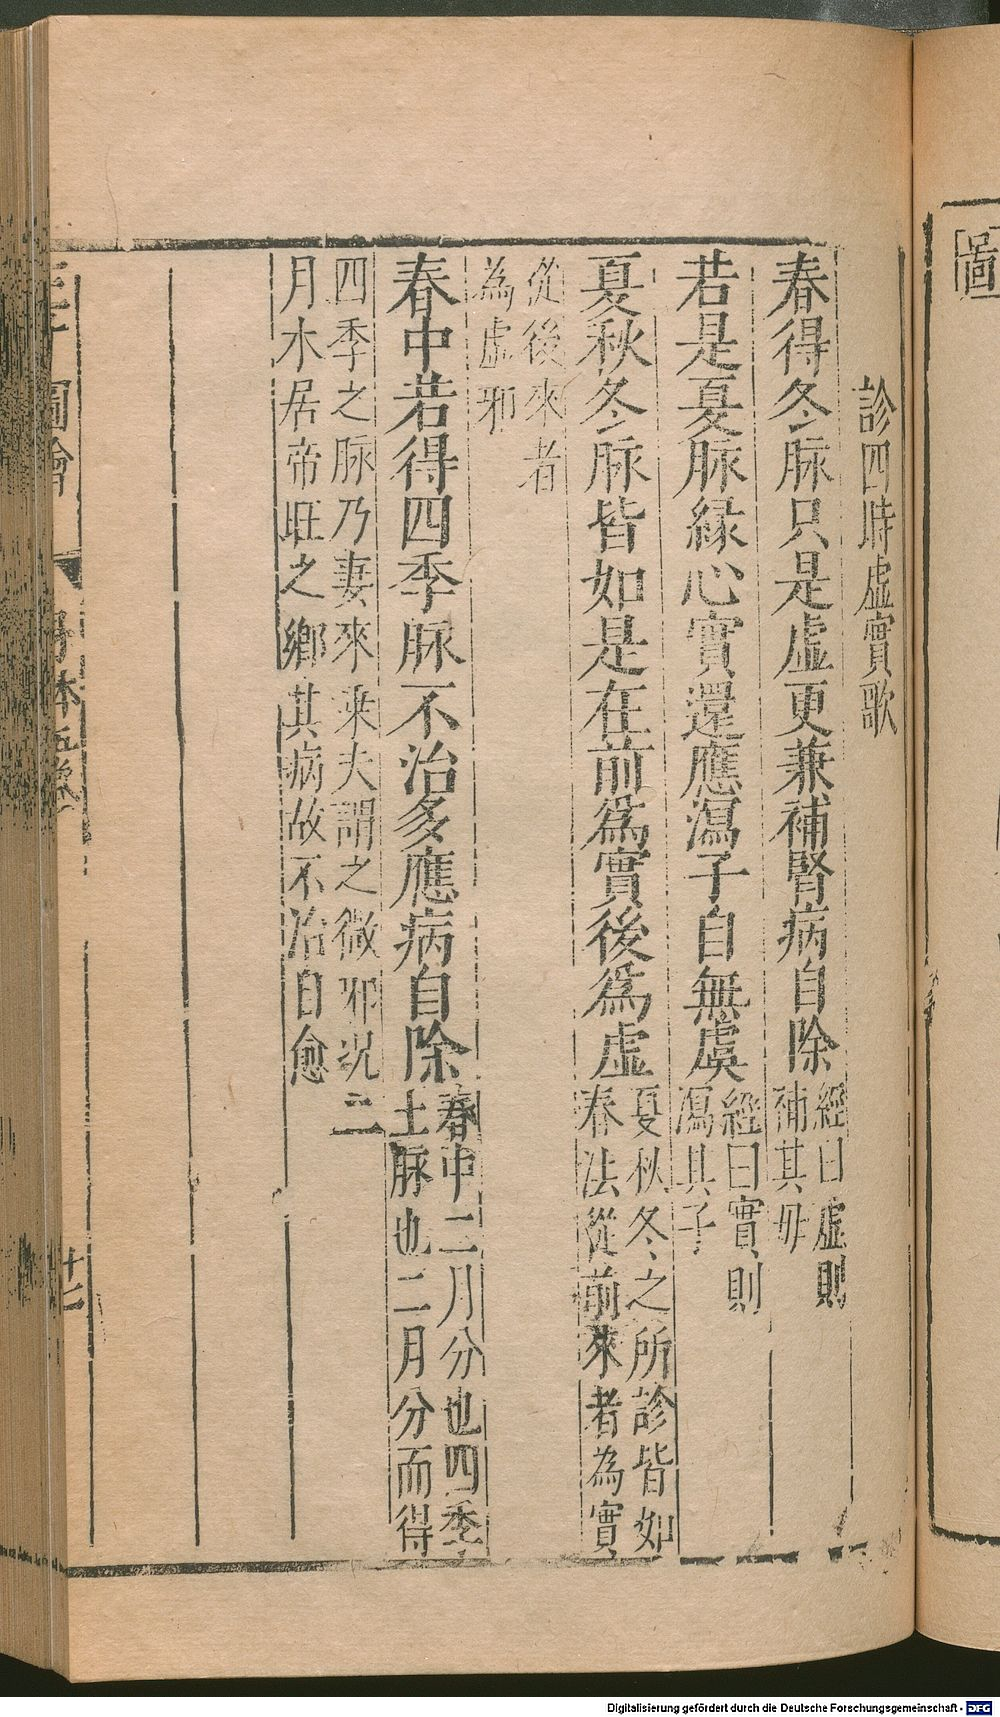 圖
診四時虛實歌
春得冬脉只是虛更兼補腎病自除經曰虛則補其母
若是夏脉緑心實還應瀉子自無虞經曰實則瀉其子
夏秋冬脉皆如是在前爲實後爲虛夏秋冬之所診皆如春法從前來者為實
從後來者為虛邪
春中若得四季脉不治多應病自除春中二月分也四季土脉也二月分而得
四季之脉乃妻來乘夫謂之微邪况二月木居帝旺之鄉其病故不治自愈
圖會
身体五卷
十七
Digitalisierung gefördert durch die Deutsche Forschungsgemeinschaft - DFG